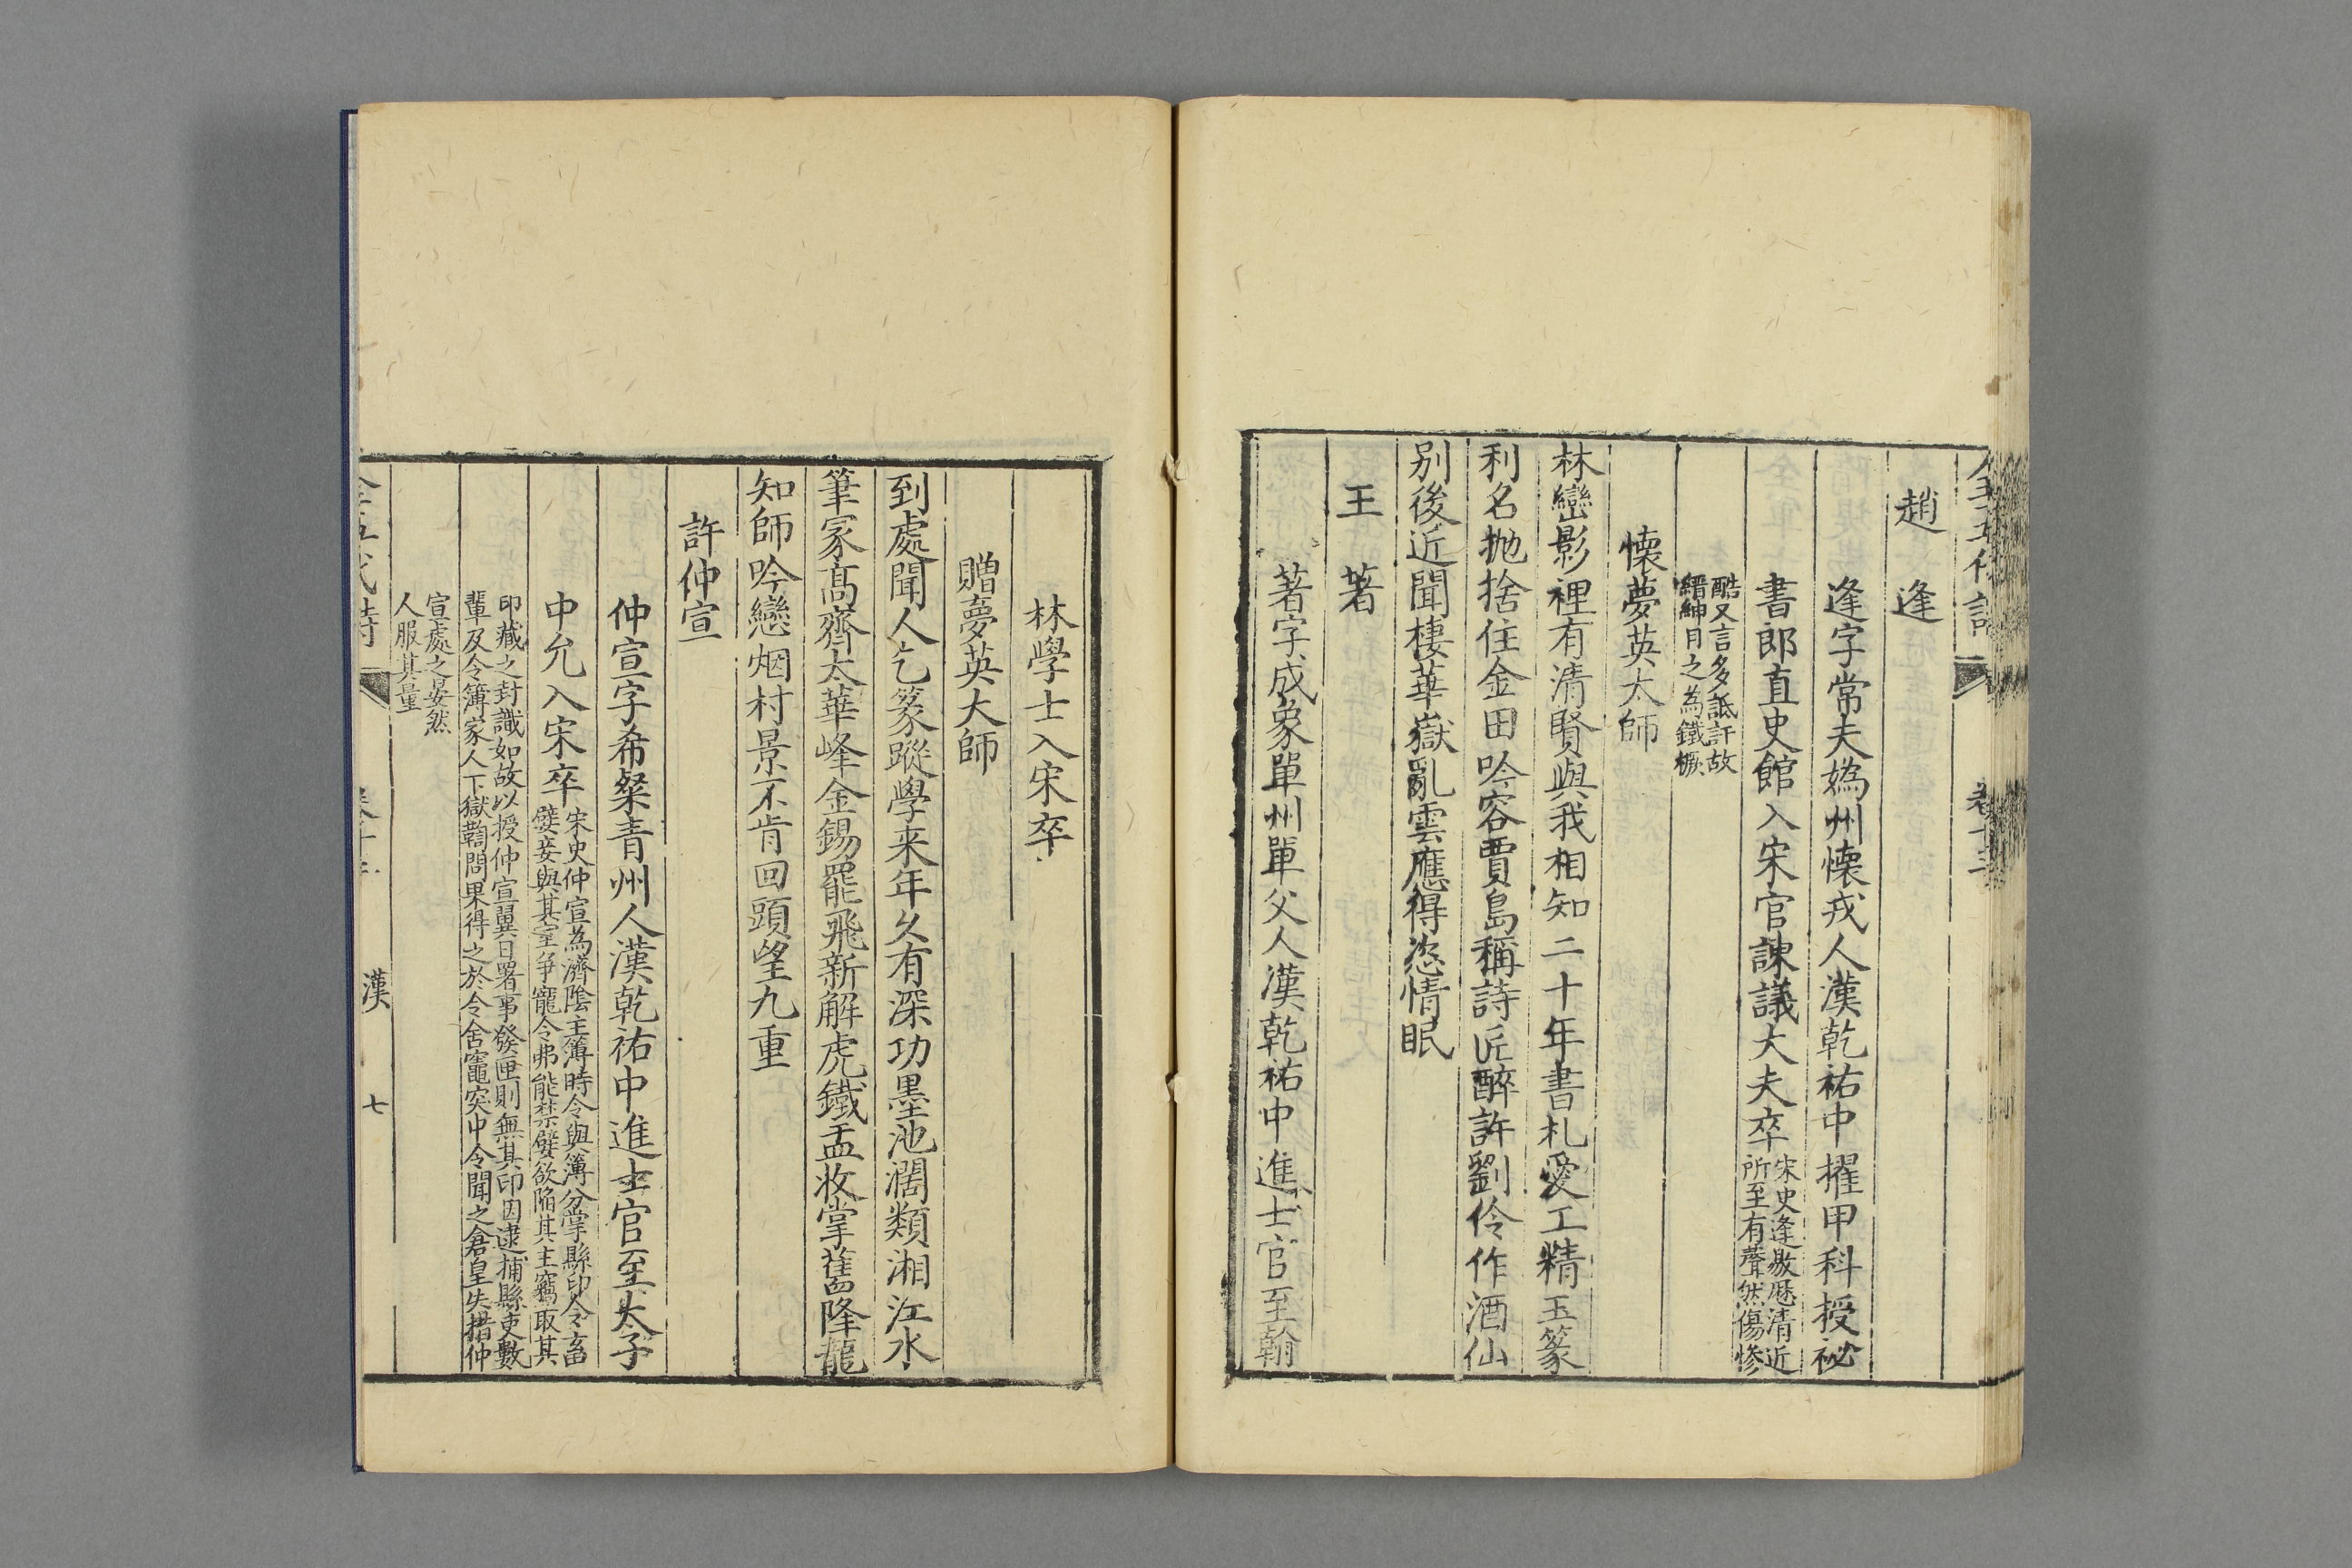 全五代詩 卷十三
趙逢
逢字常夫媯州懷戎人漢乾祐中擢甲科授祕
書郎直史館入宋官諫議大夫卒宋史逢敭歷清近
所至有聲然傷慘
酷又言多詆訐故
縉紳目之為鐵橛
懷夢英太師
林巒影裡有清賢與我相知二十年書札愛工精玉篆
利名抛捨住金田吟容賈島稱詩匠醉許劉伶作酒仙
别後近聞棲華嶽亂雲應得恣情眠
王著
著字成象單州單父人漢乾祐中進士官至翰
林學士入宋卒
贈夢英大師
到處聞人乞篆蹤學来年久有深功墨池濶類湘江水
筆冢高齊太華峰金錫罷飛新解虎鐵盂收掌舊降龍
知師吟戀烟村景不肯回頭望九重
許仲宣
仲宣字希粲青州人漢乾祐中進士官至太子
中允入宋卒宋史仲宣為濟陰主薄時令與簿分掌縣印令畜
嬖妾與其室争寵令弗能禁嬖欲陷其主竊取其
印藏之封識如故以授仲宣翼日署事發匣則無其印因逮捕縣吏數
輩及令簿家人下獄鞫問果得之於令舍竈突中令聞之倉皇失措仲
宣處之晏然
人服其量
全五代詩 漢 七